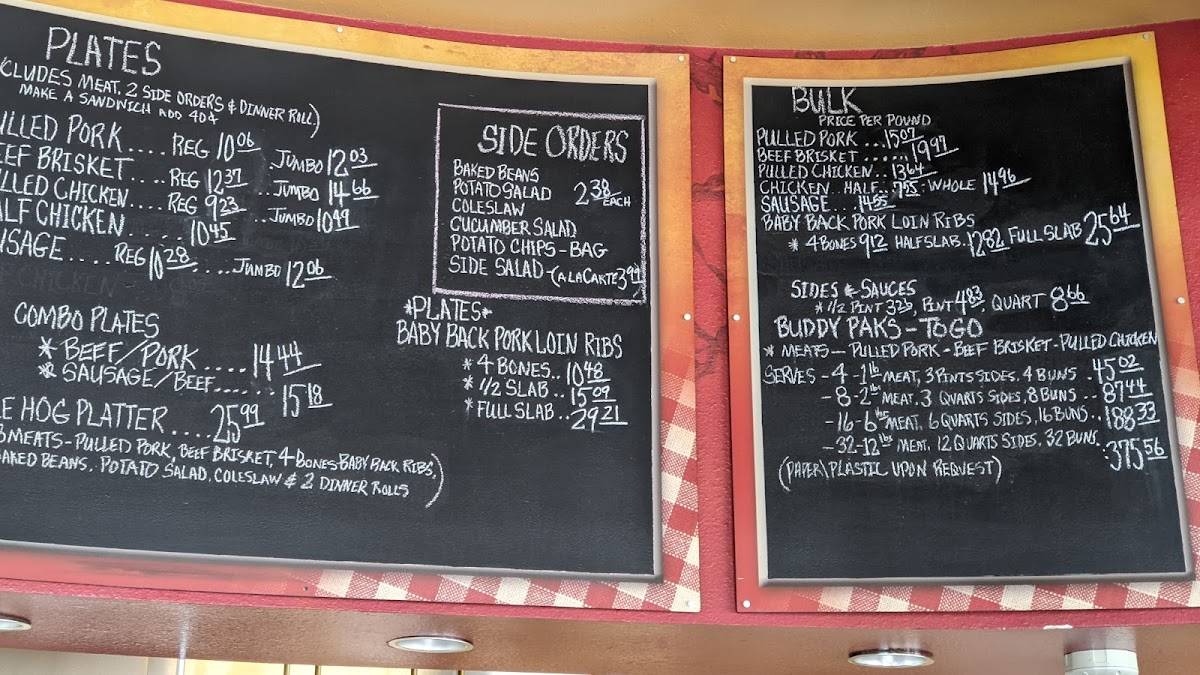 PLATES
CLUDES MEAT, 2 SIDE ORDERS & DINNER ROLL)
MAKE A SANDWICH ADD 40¢
ULLED PORK.... REG 10 06 JUMBO 12 03
EEF BRISKET.... REG 12 37 ..JUMBO 14 66
LLED CHICKEN.... REG 9 23 ..JUMBO 10 49
ALF CHICKEN..... 10 45
USAGE..... REG 10 28 .... JUMBO 12 06
COMBO PLATES
* BEEF/PORK..... 14 44
* SAUSAGE/BEEF.... 15 18
E HOG PLATTER.... 25 99
3 MEATS-PULLED PORK, BEEF BRISKET, 4 BONES-BABY BACK RIBS,
AKED BEANS, POTATO SALAD, COLESLAW & 2 DINNER ROLLS)
SIDE ORDERS
BAKED BEANS
POTATO SALAD 2 38 EACH
COLESLAW
CUCUMBER SALAD
POTATO CHIPS-BAG
SIDE SALAD-(A LA CARTE 3 99
*PLATES*
BABY BACK PORK LOIN RIBS
* 4 BONES..10 48
* 1/2 SLAB..15 09
* FULL SLAB..29 21
BULK
PRICE PER POUND
PULLED PORK...15 07
BEEF BRISKET......19 97
PULLED CHICKEN..13 64
CHICKEN..HALF..7 55..WHOLE 14 96
SAUSAGE....14 55
BABY BACK PORK LOIN RIBS
* 4 BONES 9 12 HALF SLAB.12 82 FULL SLAB 25 64
SIDES & SAUCES
* 1/2 PINT 3 26, PINT 4 83, QUART 8 66
BUDDY PAKS - TO GO
* MEATS - PULLED PORK - BEEF BRISKET - PULLED CHICKEN
SERVES - 4 - 1 lb MEAT, 3 PINTS SIDES, 4 BUNS .45 02
- 8 - 2 lbs MEAT, 3 QUARTS SIDES, 8 BUNS..87 44
- 16 - 6 lbs MEAT, 6 QUARTS SIDES, 16 BUNS..188 33
- 32 - 12 lbs MEAT, 12 QUARTS SIDES, 32 BUNS..375 56
(PAPER\PLASTIC UPON REQUEST)